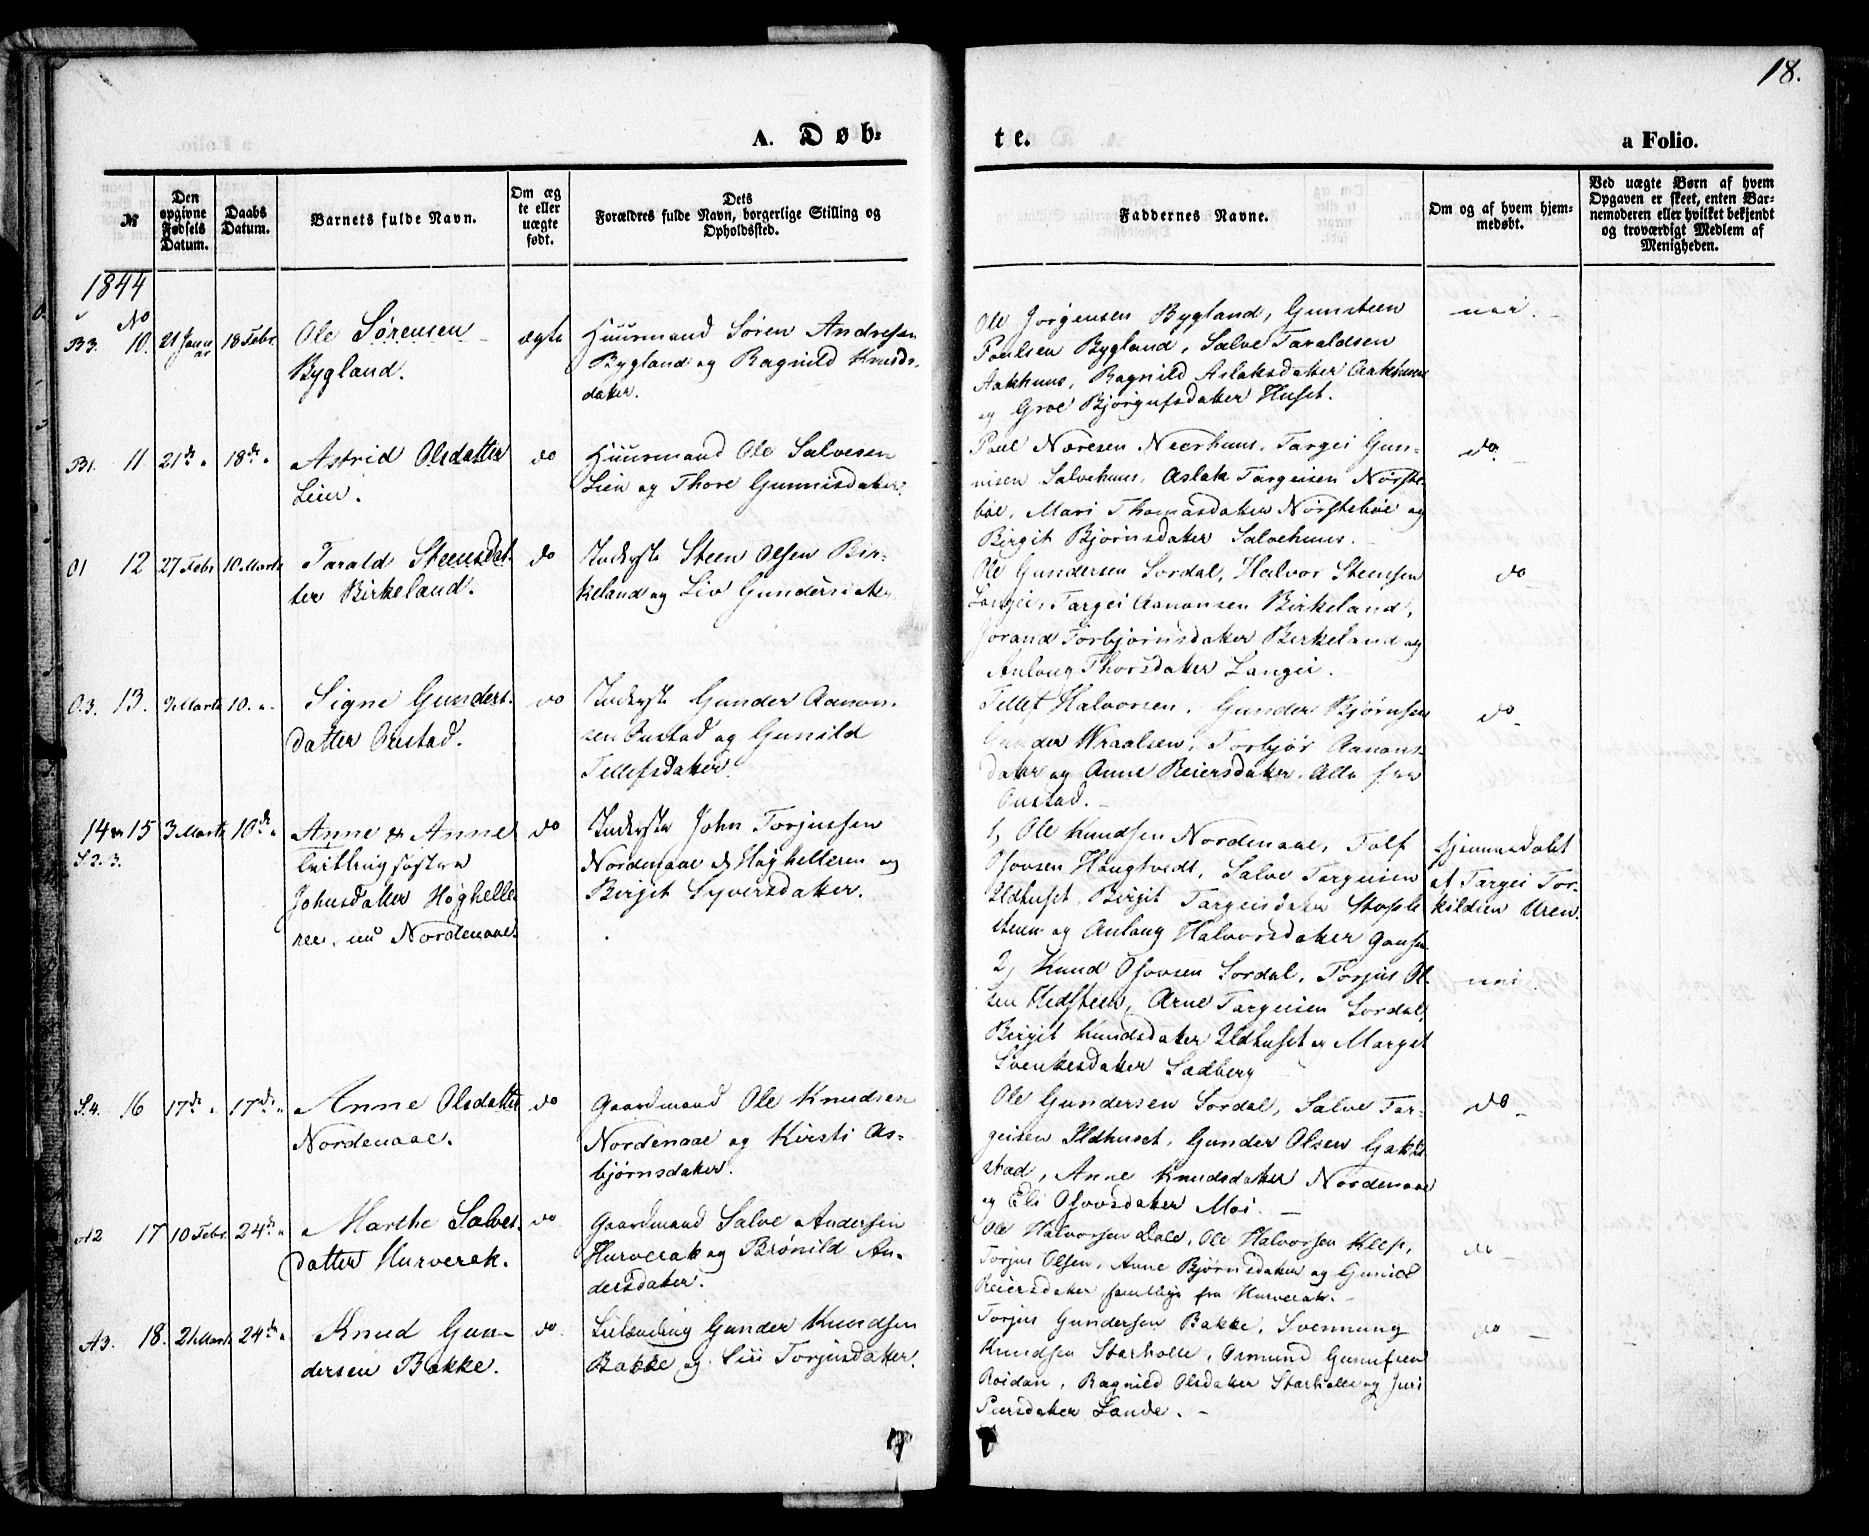 18.
A. Døb-
te.
a Folio.
№
Den opgivne Fødsels Datum.
Daabs Datum.
Barnets fulde Navn.
Om ægte eller uægte født.
Dets
Forældres fulde Navn, borgerlige Stilling og
Opholdssted.
Faddernes Navne.
Om og af hvem hjem-
medøbt.
Ved uægte Børn af hvem
Opgaven er skeet, enten Bar-
nemoderen eller hvilket bekjendt
og troværdigt Medlem af
Menigheden.
1844
No
B3. 10. 21 Janu
ar 18 Febr.
Ole Sørensen
Bygland.
ægte
Huurmand Søren Andresen
Bygland og Ragnild Knuds-
datter.
Ole Jørgensen Bygland, Gunsteen
Poulsen Bygland, Salve Taraldsen
Aakhuus, Ragnild Aslaksdatter Aakhuus
og Groe Bjørgufsdatter Huset.
nei.
B1. 11 21de 18de
Astrid Olsdatter
Lien.
do
Huurmand Ole Salvesen
Lien og Thore Gunnisdatter.
Poul Noresen Neerhuus, Targei Gun-
nisen Salvehuus, Aslak Targeisen Nørste-
bøe, Mari Thomasdatter Nørstebøe og
Birgit Bjørnsdatter Salvehuus.
do
O1 12 27 Febr 10 Marts
Tarald Steensdat-
ter Birkeland.
do
Inderste Steen Olsen Bir-
keland og Liv Gundersdatter
Ole Gundersen Sordal, Halvor Steensen
Langei, Targei Aanonsen Birkeland,
Jorand Torbjørnsdatter Birkeland og
Anlaug Thorsdatter Langei.
do
O.3. 13. 3 Marts 10.
Signe Gunders-
datter Oustad.
do
Inderste Gunder Aanon-
sen Oustad og Gunild
Tellefsdatter.
Tellef Halvorsen, Gunder Bjørnsen
Gunder Wraalsen, Torbjør Aanons-
datter og Anne Reiersdatter. Alle fra
Oustad.
do
14 & 15 3 Marts 10de
S. 2. 3.
Anne & Anne
tvillingsøstre
Johnsdatter Høghelle-
ren, nu Nordenaae.
do
Inderste John Torjussen
Nordenaae & Høghelleren og
Birgit Syversdatter.
1, Ole Knudsen Nordenaae, Tolf
Osovsen Haugtvedt, Salve Targeisen
Ildhuset, Birgit Targeisdatter Stosle-
steen og Anlaug Halvorsdatter
hjemmedøbt
af Targei Tor-
kildsen Uren
2, Knud Osovsen Sordal, Torjus Ol-
sen Hedsteen, Arne Targeisen Sordal,
Birgit Knudsdatter Ildhuset & Margit
Svenkesdatter Sædberg
nei.
S.4. 16 17de 17de
Anne Olsdatter
Nordenaae.
do
Gaardmand Ole Knudsen
Nordenaae og Kirsti As-
bjørnsdatter.
Ole Gundersen Sordal, Salve Tar-
geisen Ildhuset, Gunder Olsen Gakke-
stad, Anne Knudsdatter Nordenaae
og Eli Osovsdatter Moi.
do
A2 17 10 Febr. 24de
Marthe Salves-
datter Hurverak.
do
Gaardmand Salve Andersen
Hurverak og Brønild An-
dersdatter.
Ole Halvorsen Dale, Ole Halvorsen Klep,
Torjus Olsen, Anne Bjørnsdatter og Gunild
Reiersdatter samtlige fra Hurverak.
do
A3. 18. 21 Marts 24de
Knud Gun-
dersen Bakke.
do
Leilænding Gunder Knudsen
Bakke og Siri Torjusdatter.
Torjus Gundersen Bakke, Svennung
Knudsen Starholte, Osmund Gunufsen
Roidan, Ragnild Olsdatter Starholte og Juri
Peersdatter Lande.
do